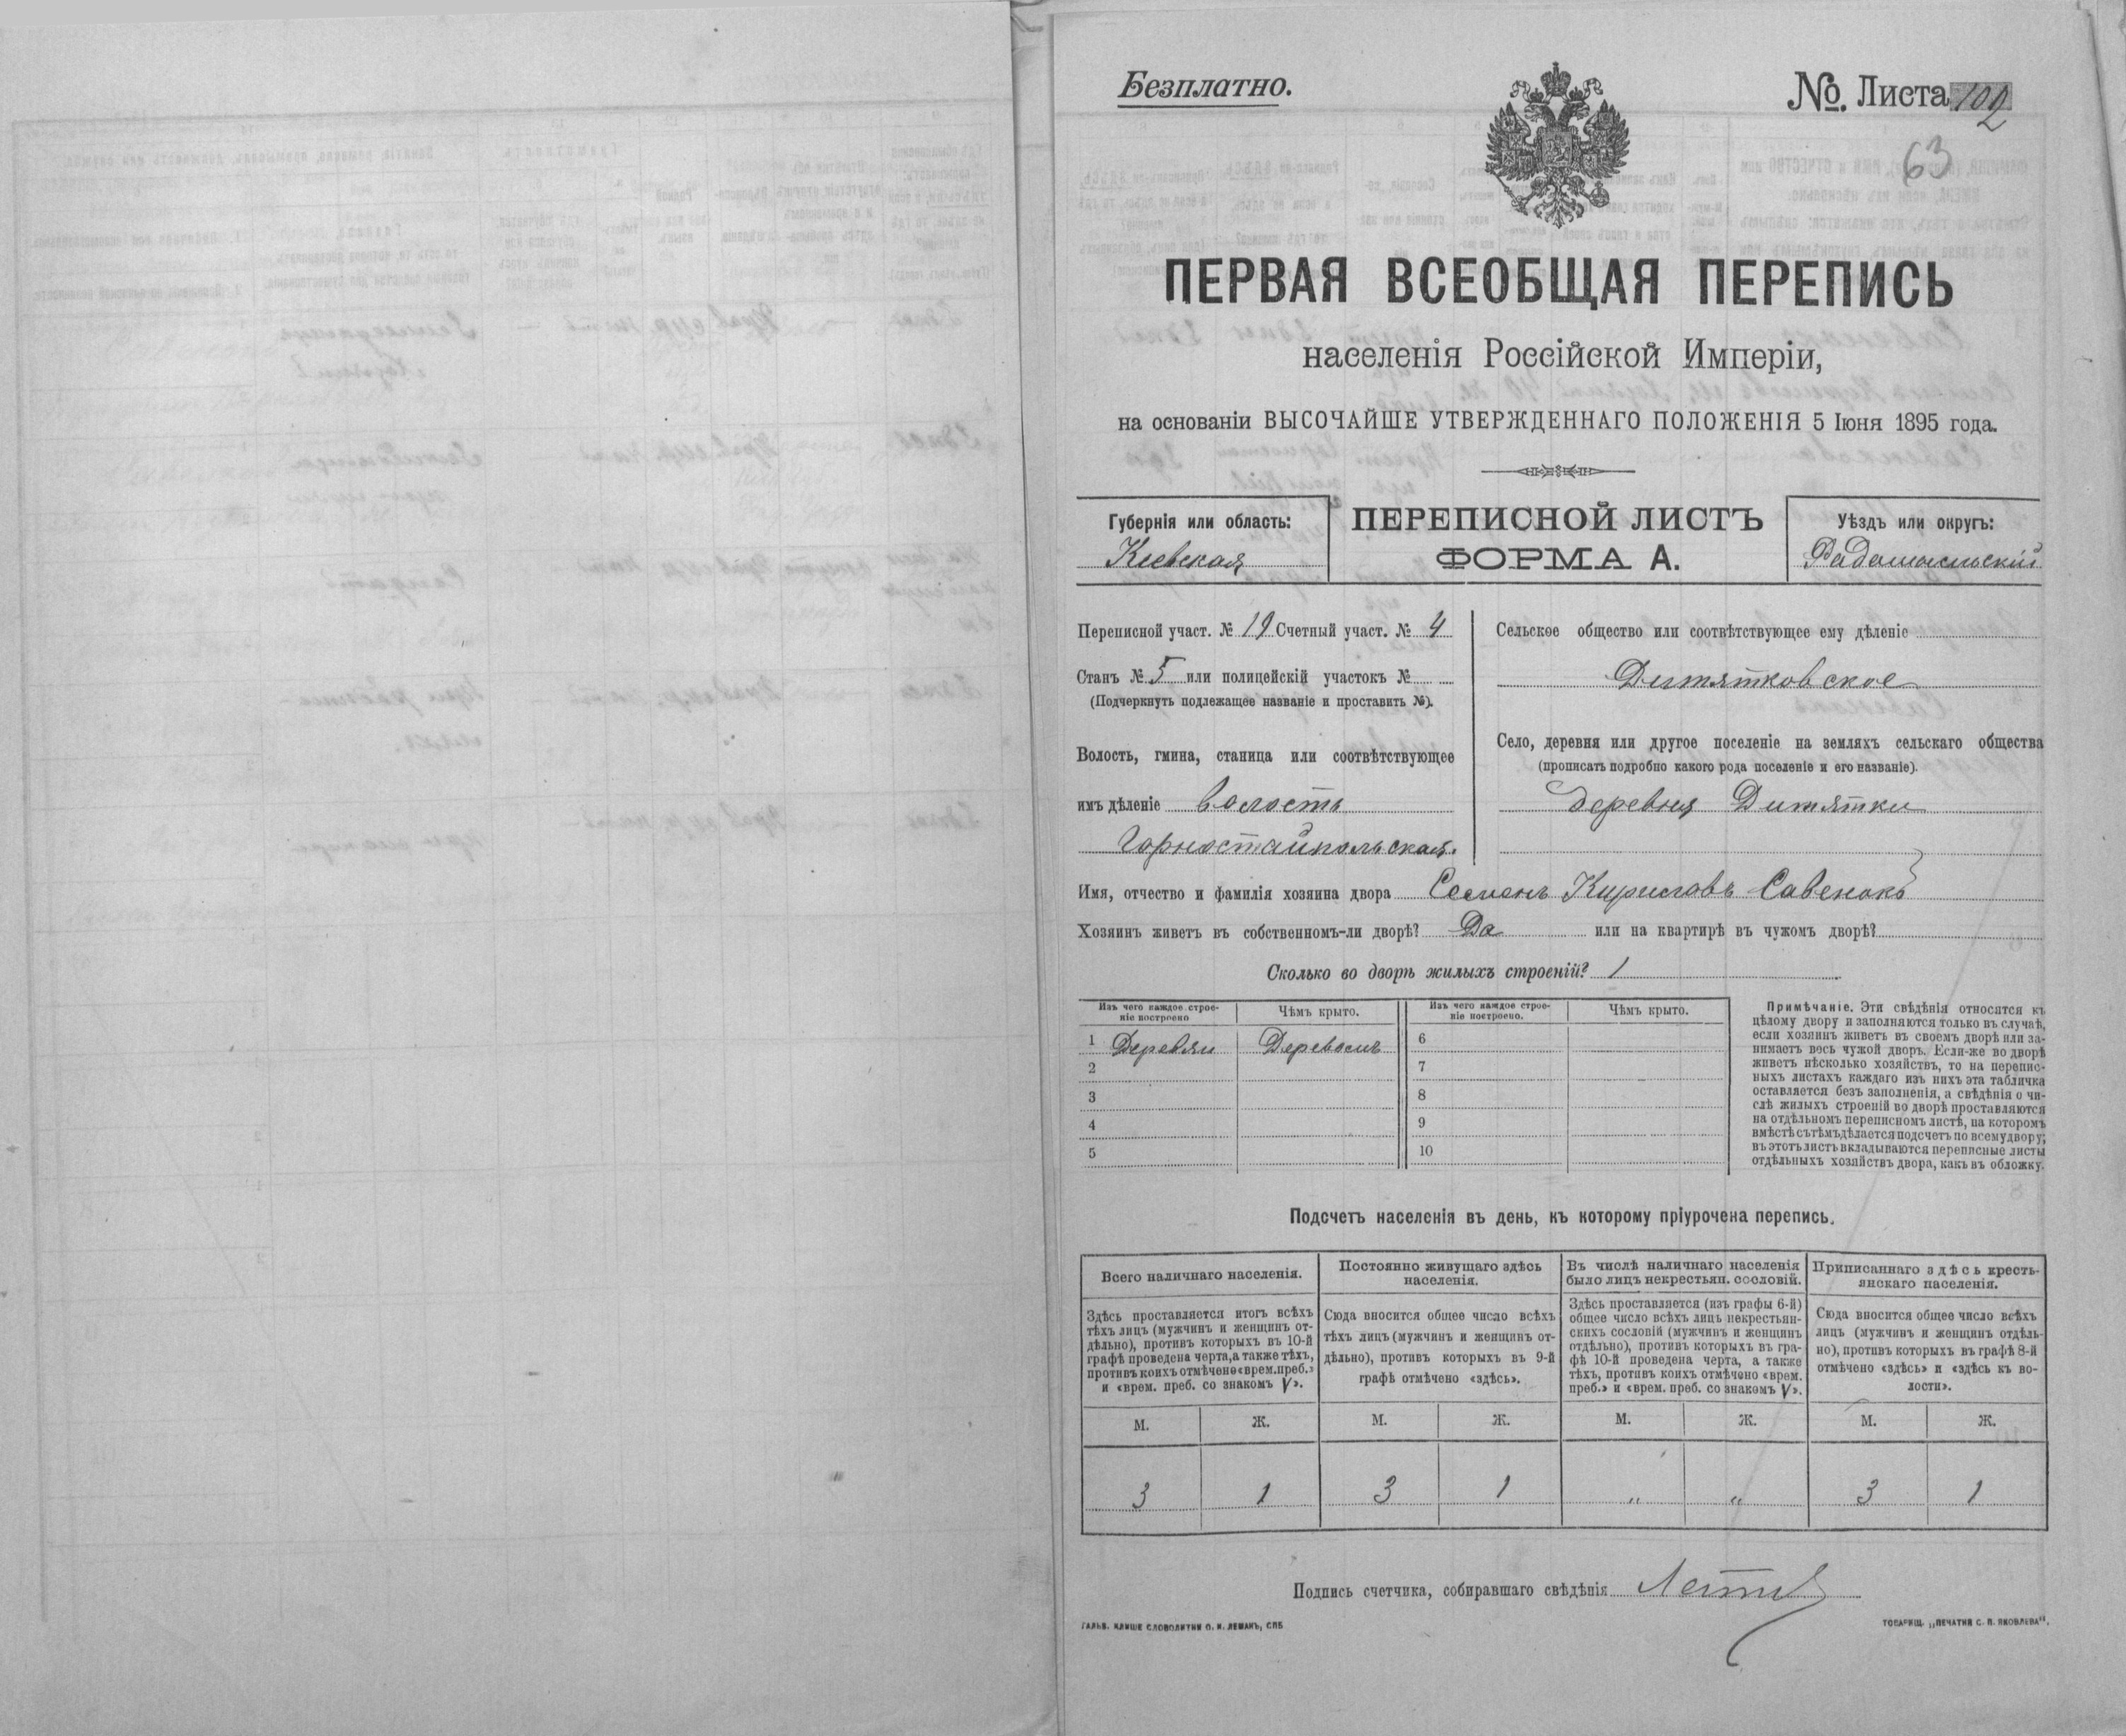 Безплатно.
№ Листа 102
63
ПЕРВАЯ ВСЕОБЩАЯ ПЕРЕПИСЬ
населенія Россійской Имперіи,
на основаніи ВЫСОЧАЙШЕ УТВЕРЖДЕННАГО ПОЛОЖЕНІЯ 5 Іюня 1895 года.
Губернія или область:
Кіевская
ПЕРЕПИСНОЙ ЛИСТЪ
ФОРМА А.
Уѣздъ или округъ:
Радомысльскій
Переписной участ. № 19 Счетный участ. № 4
Станъ № 5 или полицейскій участокъ №
(Подчеркнуть подлежащее названіе и проставить №).
Волость, гмина, станица или соотвѣтствующее
имъ дѣленіе волость
Горностайпольская.
Сельское общество или соотвѣтствующее ему дѣленіе
Дитятковское
Село, деревня или другое поселеніе на земляхъ сельскаго общества
(прописать подробно какого рода поселеніе и его названіе).
деревня Дитятки
Имя, отчество и фамилія хозяина двора Семенъ Кириловъ Савенокъ
Хозяинъ живетъ въ собственномъ-ли дворѣ? Да или на квартирѣ въ чужомъ дворѣ?
Сколько во дворѣ жилыхъ строеній? 1
Изъ чего каждое строе-
ніе построено
Чѣмъ крыто.
Изъ чего каждое строе-
ніе построено.
Чѣмъ крыто.
1 Деревян Деревомъ 6
2 7
3 8
4 9
5 10
Примѣчаніе. Эти свѣдѣнія относятся къ
цѣлому двору и заполняются только въ случаѣ,
если хозяинъ живетъ въ своемъ дворѣ или за-
нимаетъ весь чужой дворъ. Если-же во дворѣ
живетъ нѣсколько хозяйствъ, то на перепис-
ныхъ листахъ каждаго изъ нихъ эта табличка
оставляется безъ заполненія, а свѣдѣнія о чи-
слѣ жилыхъ строеній во дворѣ проставляются
на отдѣльномъ переписномъ листѣ, на которомъ
вмѣстѣ съ тѣмъ дѣлается подсчетъ по всему двору;
въ этотъ листъ вкладываются переписные листы
отдѣльныхъ хозяйствъ двора, какъ въ обложку.
Подсчетъ населенія въ день, къ которому пріурочена перепись.
Всего наличнаго населенія.
Здѣсь проставляется итогъ всѣхъ
тѣхъ лицъ (мужчинъ и женщинъ от-
дѣльно), противъ которыхъ въ 10-й
графѣ проведена черта, а также тѣхъ,
противъ коихъ отмѣчено «врем. преб.»
и «врем. преб. со знакомъ V».
Постоянно живущаго здѣсь
населенія.
Сюда вносится общее число всѣхъ
тѣхъ лицъ (мужчинъ и женщинъ от-
дѣльно), противъ которыхъ въ 9-й
графѣ отмѣчено «здѣсь».
Въ числѣ наличнаго населенія
было лицъ некрестьян. сословій.
Здѣсь проставляется (изъ графы 6-й)
общее число всѣхъ лицъ некрестьян-
скихъ сословій (мужчинъ и женщинъ
отдѣльно), противъ которыхъ въ гра-
фѣ 10-й проведена черта, а также
тѣхъ, противъ коихъ отмѣчено «врем.
преб.» и «врем. преб. со знакомъ V».
Приписаннаго здѣсь кресть-
янскаго населенія.
Сюда вносится общее число всѣхъ
лицъ (мужчинъ и женщинъ отдѣль-
но), противъ которыхъ въ графѣ 8-й
отмѣчено «здѣсь» и «здѣсь къ во-
лости».
М. Ж. М. Ж. М. Ж. М. Ж.
3 1 3 1 „ „ 3 1
Подпись счетчика, собиравшаго свѣдѣнія
ГАЛЬВ. КЛИШЕ СЛОВОЛИТНИ О. И. ЛЕМАНЪ, СПБ
ТОВАРИЩ. „ПЕЧАТНЯ С. П. ЯКОВЛЕВА“.